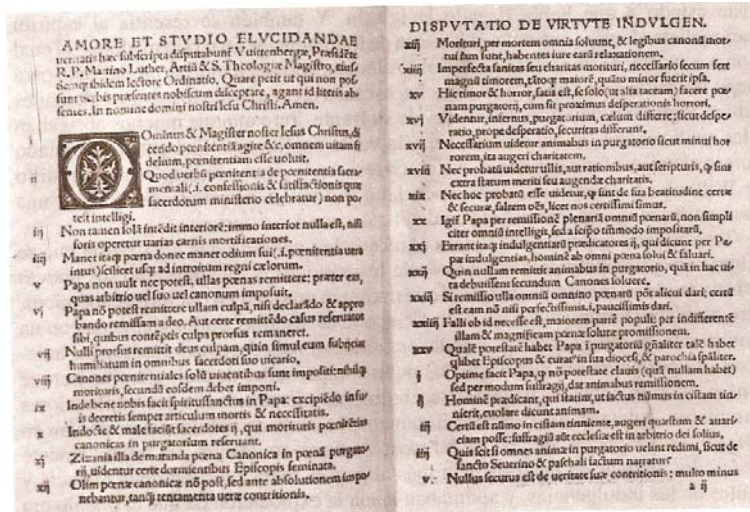 AMORE ET STVDIO ELVCIDANDAE
ueritatis hæc subscripta disputabunť Vuittenbergæ, Præsidẽte
R. P. Martino Luther, Artiũ & S. Theologiæ Magistro, eius-
demq; ibidem lectore Ordinario. Quare petit ut qui non pos-
sunt uerbis præsentes nobiscum disceptare, agant id literis ab-
sentes. In nomine domini nostri Iesu Christi. Amen.
i DOminus & Magister noster Iesus Christus, di
cendo pœnitentiã agite &c. omnem uitam fi
delium, pœnitentiam esse uoluit.
ii Quod uerbũ pœnitentia de pœnitentia sacra-
mentali (.i. confessionis & satisfactionis quæ
sacerdotum ministerio celebratur) non po-
test intelligi.
iij Non tamen solã intẽdit interiorẽ: immo interior nulla est, nisi
foris operetur uarias carnis mortificationes.
iiij Manet itaq; pœna donec manet odium sui (.i. pœnitentia uera
intus) scilicet usq; ad introitum regni cælorum.
v Papa non uult nec potest, ullas pœnas remittere: præter eas,
quas arbitrio uel suo uel canonum imposuit.
vj Papa nõ potest remittere ullam culpã, nisi declarãdo & appro
bando remissam a deo. Aut certe remittẽdo casus reseruatos
sibi, quibus contẽptis culpa prorsus remaneret.
vij Nulli prorsus remittit deus culpam, quin simul eum subijciat
humiliatum in omnibus sacerdoti suo uicario.
viij Canones pœnitentiales solũ uiuentibus sunt impositi: nihilq;
morituris, secundũ eosdem debet imponi.
ix Inde bene nobis facit spiritussanctus in Papa: excipiẽdo in su-
is decretis semper articulum mortis & necessitatis.
x Indocte & male faciũt sacerdotes ij, qui morituris pœnitẽtias
canonicas in purgatorium reseruant.
xj Zizania illa de mutanda pœna Canonica in pœnã purgato-
rij, uidentur certe dormientibus Episcopis seminata.
xij Olim pœnæ canonicæ nõ post, sed ante absolutionem impo-
nebantur, tanq̃ tentamenta ueræ contritionis.
DISPVTATIO DE VIRTVTE INDVLGEN.
xiij Morituri, per mortem omnia soluunt, & legibus canonũ mor-
tui iam sunt, habentes iure earũ relaxationem.
xiiij Imperfecta sanitas seu charitas morituri, necessario secum fert
magnũ timorem, tãtoq; maiorẽ, quãto minor fuerit ipsa.
xv Hic timor & horror, satis est, se solo (ut alia taceam) facere pœ-
nam purgatorij, cum sit proximus desperationis horrori.
xvj Videntur, infernus, purgatorium, cælum differre: sicut despe-
ratio, prope desperatio, securitas differunt.
xvij Necessarium uidetur animabus in purgatorio sicut minui hor
rorem, ita augeri charitatem.
xviij Nec probatũ uidetur ullis, aut rationibus, aut scripturis, q̃ sint
extra statum meriti seu augendæ charitatis.
xix Nec hoc probatũ esse uidetur, q̃ sint de sua beatitudine certæ
& securæ, saltem oẽs, licet nos certissimi simus.
xx Igiť Papa per remissionẽ plenariã omniũ pœnarũ, non simpli
citer omniũ intelligit, sed a seipso tm̃modo impositarũ.
xxj Errant itaq; indulgentiarũ prædicatores ij, qui dicunt per Pa-
pæ indulgentias, hominẽ ab omni pœna solui & saluari.
xxij Quin nullam remittit animabus in purgatorio, quã in hac ui-
ta debuissent secundum Canones soluere.
xxiij Si remissio ulla omniũ omnino pœnarũ põt alicui dari: certũ
est eam nõ nisi perfectissimis .i. paucissimis dari.
xxiiij Falli ob id necesse est, maiorem partẽ populi: per indifferentẽ
illam & magnificam pœnæ solutæ promissionem.
xxv Qualẽ potestatẽ habet Papa ĩ purgatoriũ gñaliter talẽ habet
q̃libet Episcopus & curatꝰ in sua diocesi, & parochia spãliter.
i Optime facit Papa, q̃ nõ potestate clauis (quã nullam habet)
sed per modum suffragij, dat animabus remissionem.
ij Hominẽ prædicant, qui statim, ut iactus nũmus in cistam tin-
nierit, euolare dicunt animam.
iij Certũ est nũmo in cistam tinniente, augeri quæstum & auari-
ciam posse: suffragiũ aũt ecclesiæ est in arbitrio dei solius,
iiij Quis scit si omnes animæ in purgatorio uelint redimi, sicut de
sancto Seuerino & paschali factum narratur
v. Nullus securus est de ueritate suæ contritionis: multo minus
a ij